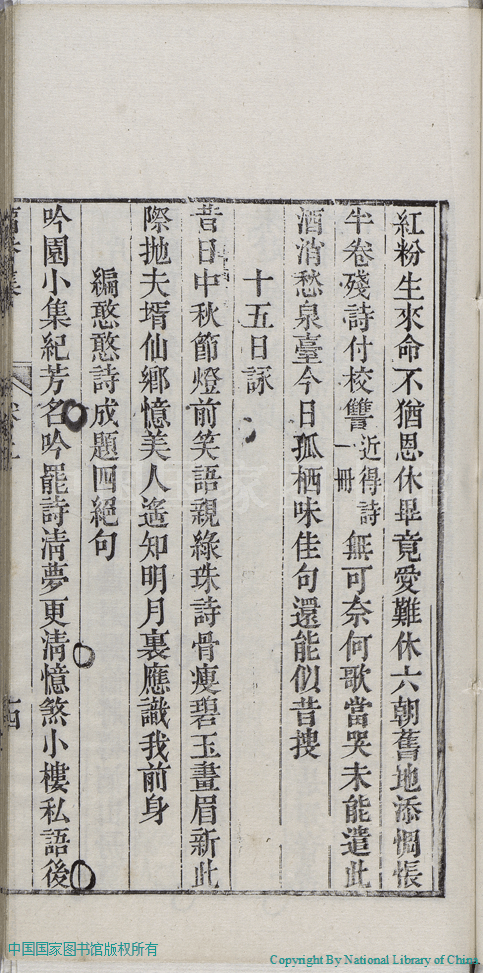 紅粉生來命不猶恩休畢竟愛難休六朝舊地添惆悵
半卷殘詩付校讐近得詩一冊無可奈何歌當哭未能遣此
酒消愁泉臺今日孤栖味佳句還能似昔搜
十五日詠
昔日中秋節燈前笑語親綠珠詩骨瘦碧玉畫眉新此
際拋夫壻仙鄉憶美人遙知明月裏應識我前身
編憨憨詩成題四絕句
吟園小集紀芳名吟罷詩清夢更清憶煞小樓私語後
中国国家图书馆版权所有
Copyright By National Library of China